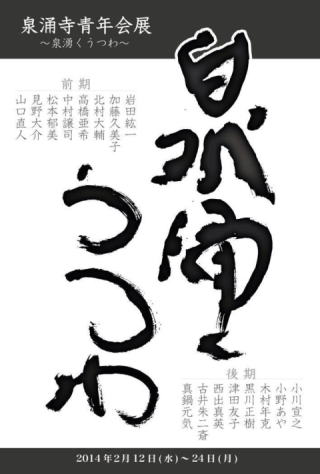 泉涌寺青年会展
〜泉湧くうつわ〜
泉涌
うつわ
前期
岩田紘一
加藤久美子
北村大輔
高橋亜希
中村譲司
松本郁美
見野大介
山口直人
後期
小川宣之
小野あや
木村年克
黒川正樹
津田友子
西出真英
古井朱二斎
真鍋元気
2014年2月12日(水)〜24日(月)